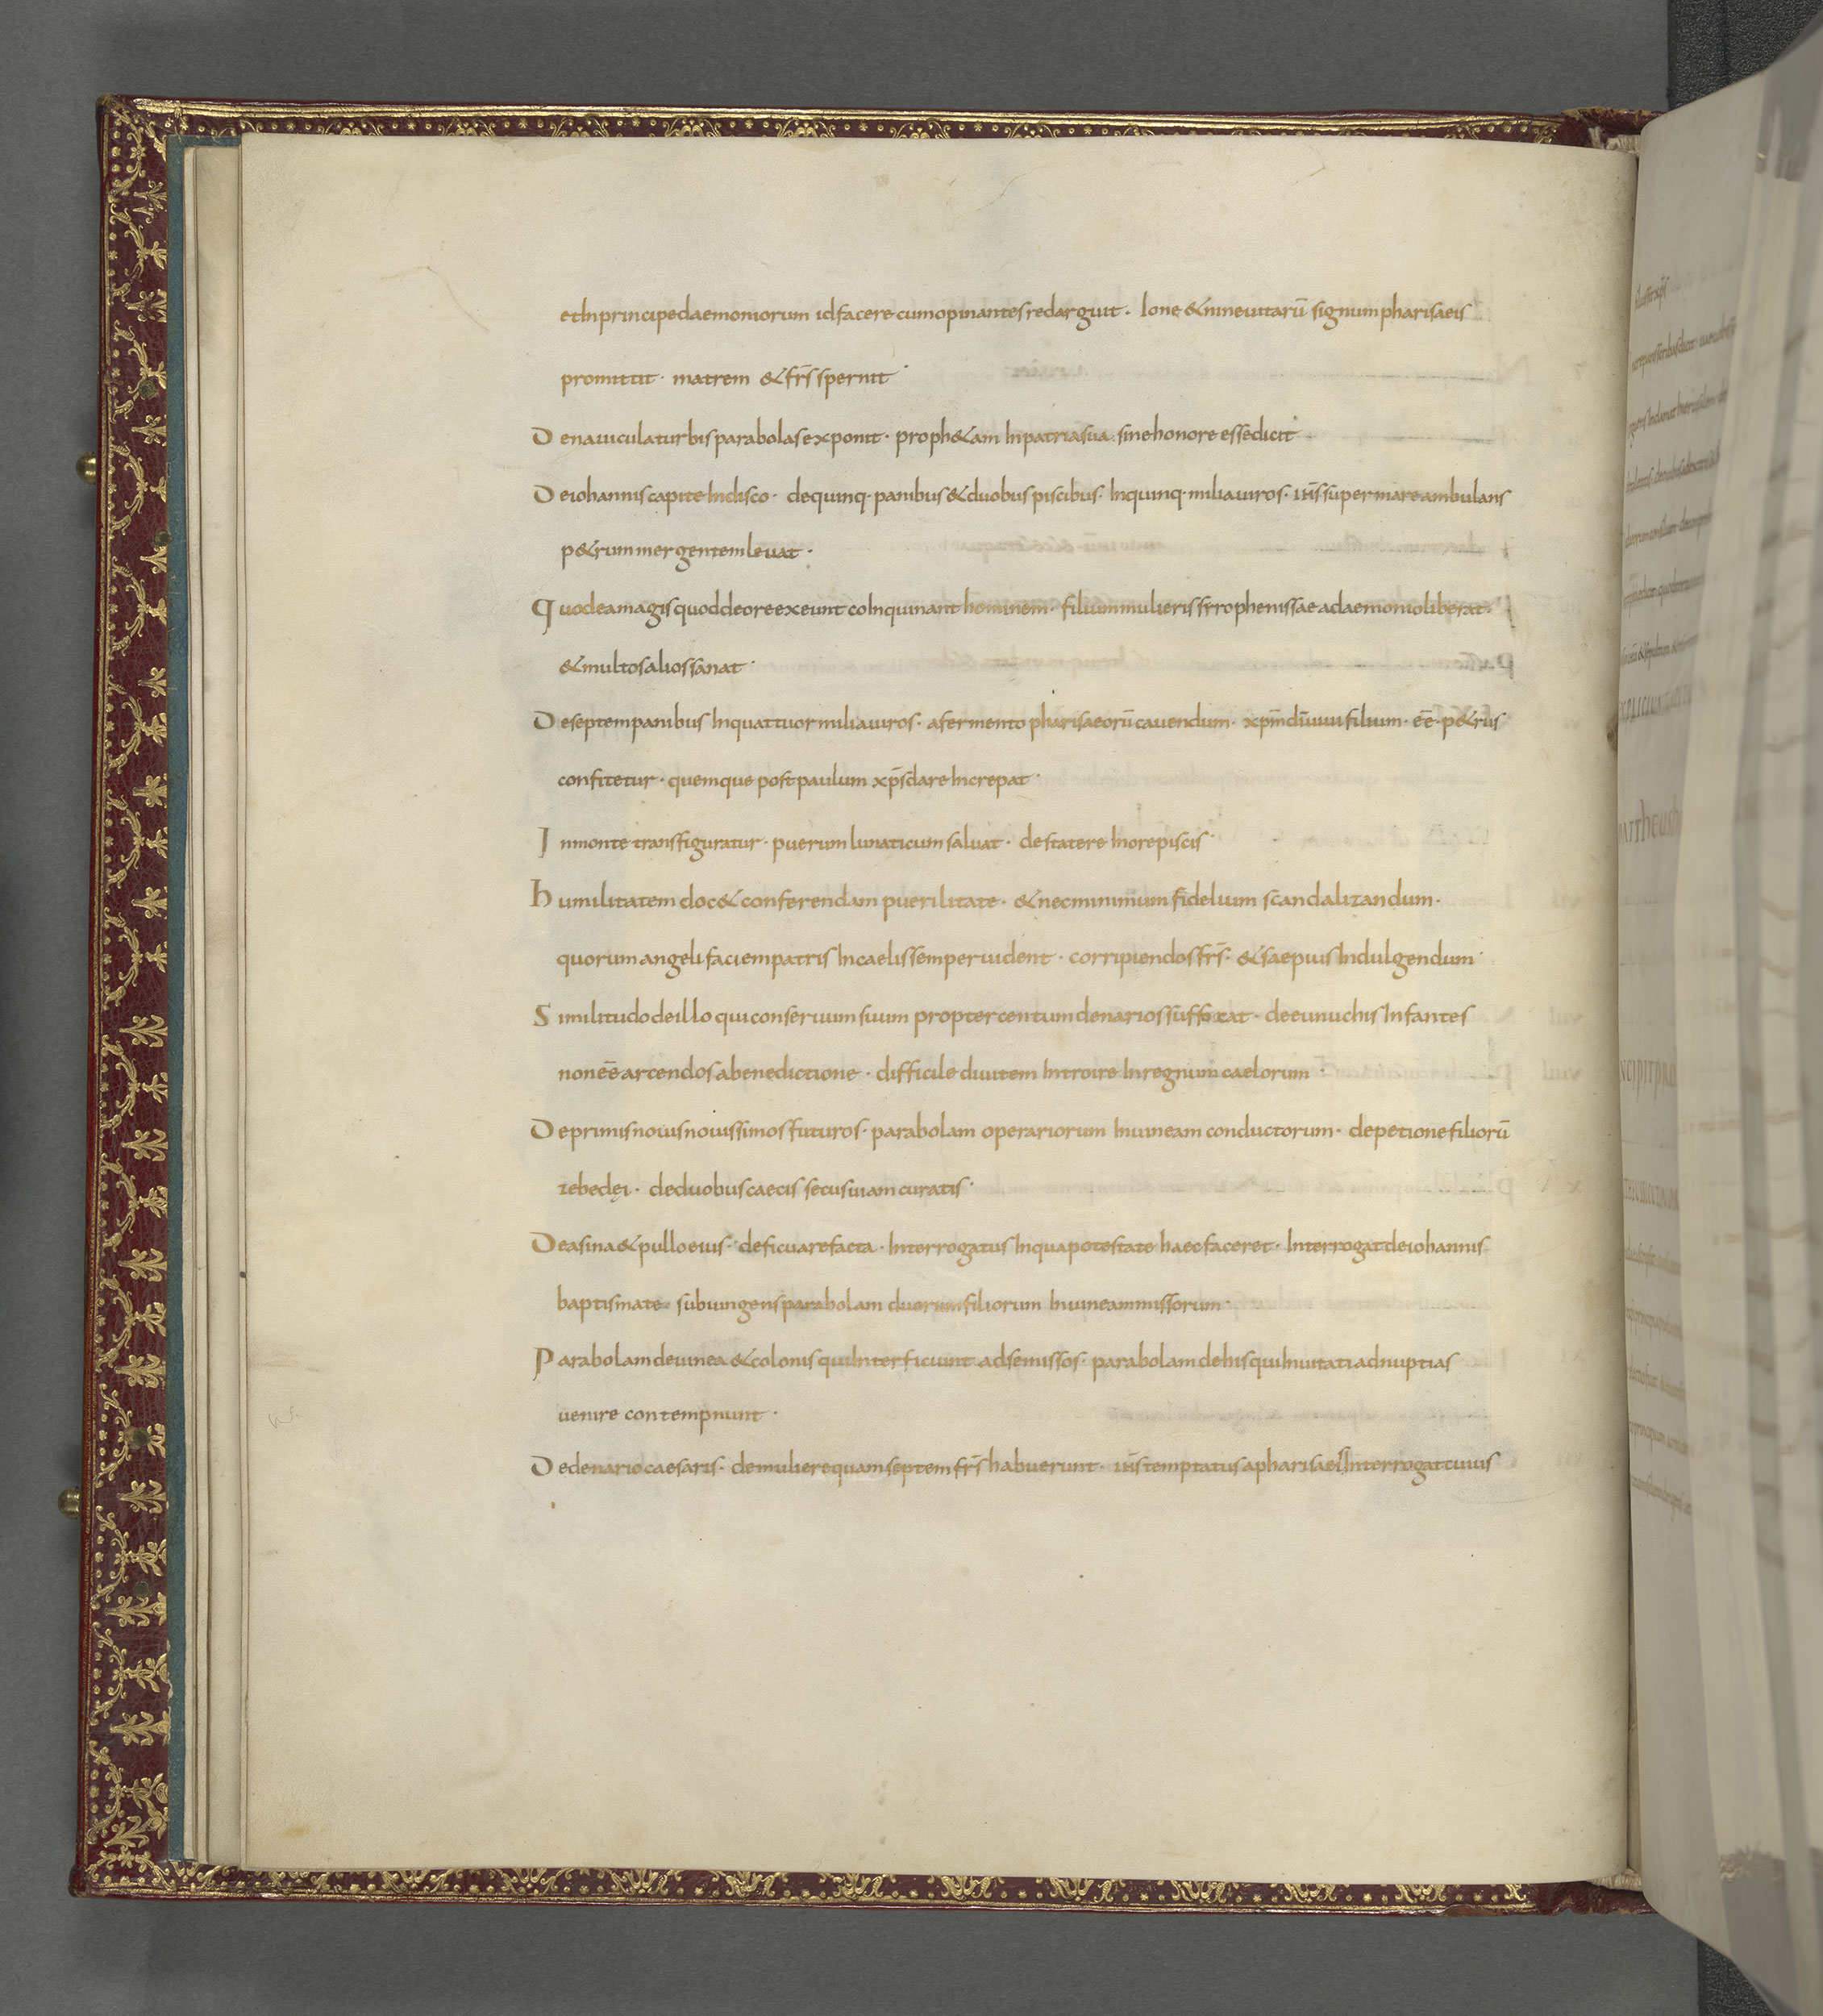 et In principe daemoniorum id facere eum opinantes redarguit · Ione & nineuitarū signum pharisaeis
promittit · matrem & fr̄s spernit ·
De nauicula turbis parabolas exponit · proph&am In patria sua sine honore esse dicit
De iohannis capite In disco · de quinq· panibus & duobus piscibus · In quinq· milia uiros · ih̄s super mare ambulans
p&rum mergentem leuat ·
Quod ea magis quod de ore exeunt coInquinant hominem · filium mulieris syrophenissae a daemonio liberat ·
& multos alios sanat ·
De septem panibus In quattuor milia uiros · a fermento pharisaeorū cauendum · xp̄m dī uiui filium · eē · p&rus
confitetur · quemque post paulum xp̄s dare Increpat ·
In monte transfiguratur · puerum lunaticum saluat · de statere In ore piscis ·
Humilitatem doc& conferendam puerilitate · & nec minimum fidelium scandalizandum ·
quorum angeli faciem patris In caelis semper uident · corripiendos fr̄s · & saepius Indulgendum ·
Similitudo de illo qui conseruum suum propter centum denarios suffocat · de eunuchis Infantes
non eē arcendos a benedictione · difficile diuitem Introire In regnum caelorum ·
De primis nouis nouissimos futuros · parabolam operariorum In uineam conductorum · de petione filiorū
zebedęi · de duobus caecis secus uiam curatis ·
De asina & pullo eius · de ficu arefacta · Interrogatus In qua potestate haec faceret · Interrogat de iohannis
baptismate · subiungens parabolam duorum filiorum In uineam missorum ·
Parabolam de uinea & colonis qui Interficiunt ad se missos · parabolam de his qui Inuitati ad nuptias
uenire contempnunt ·
De denario caesaris · de muliere quam septem fr̄s habuerunt · ih̄s temptatus a pharisaeis Interrogat cuius